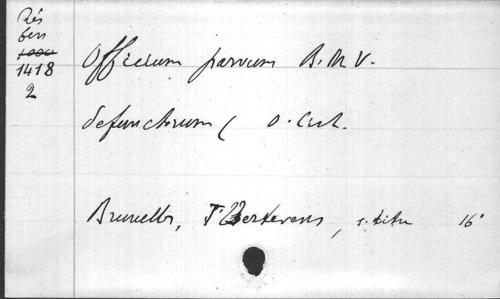 Rés
1418
2
Officium parvum B.M.V.
defunctorum ( O. Cist.
Bruxelles, T'Serstevens, s. 16°